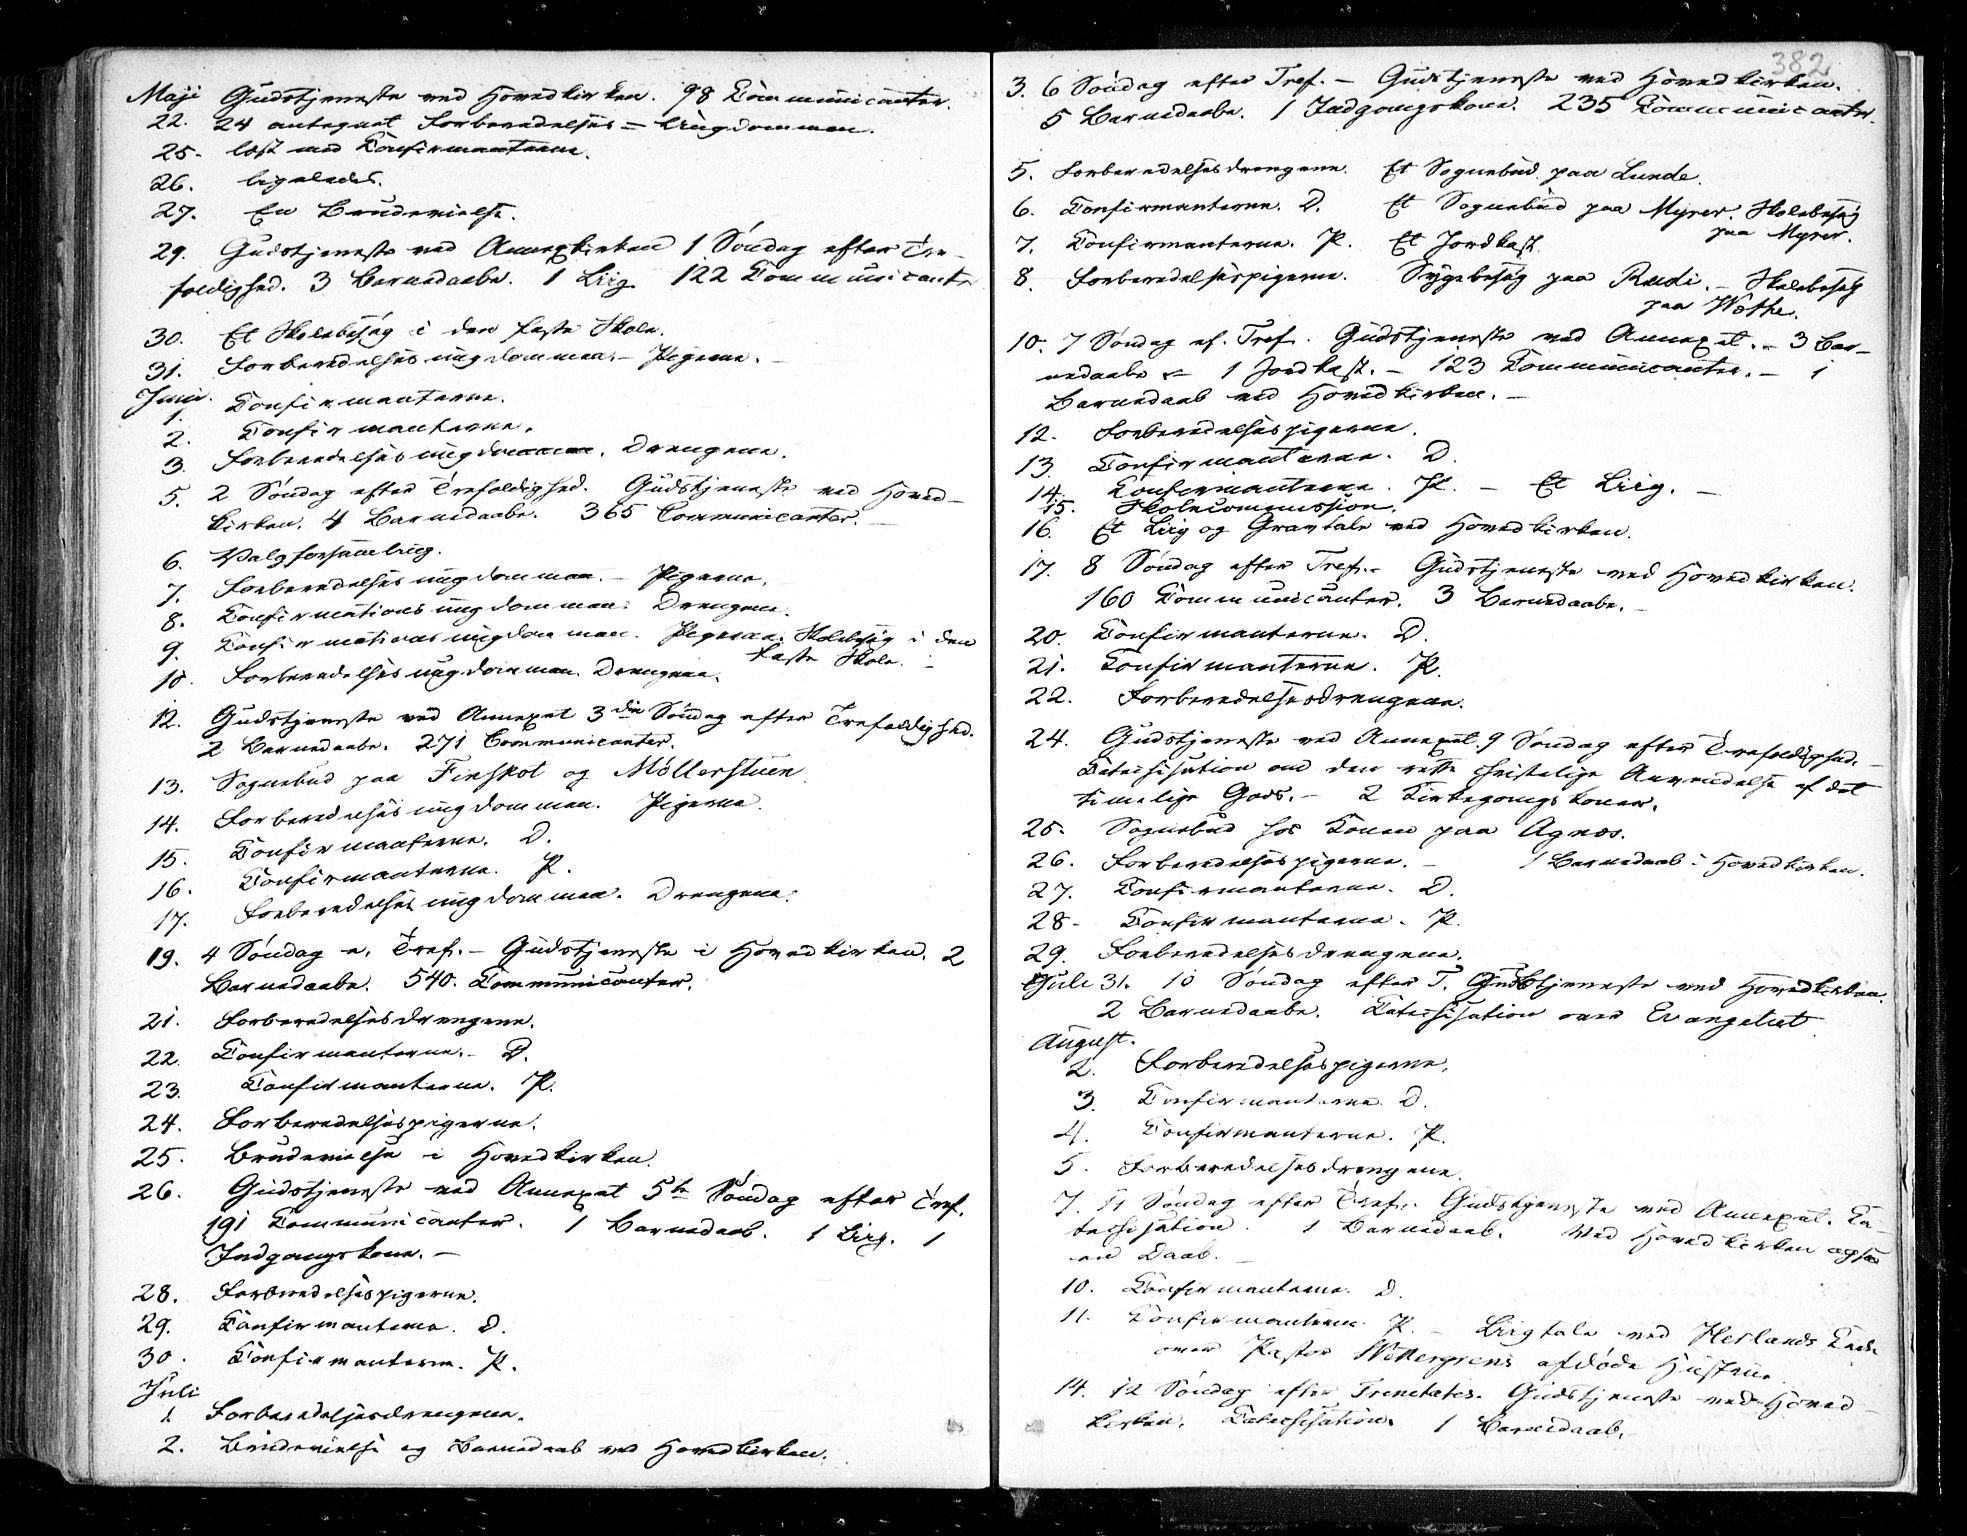 Maji Gudstjeneste ved Hovedkirken. 98 Communicanter.
22. 24 antegnet Forberedelses-Ungdommen.
25. læst med Confirmanterne.
26. ligeledes.
27. En Brudevielse.
29. Gudstjeneste ved Annexkirken 1 Søndag efter Tre-
foldighed. 3 Barnedaabe. 1 Liig 122 Communicanter
30. Et Skolebesøg i den faste Skole.
31. Forberedelsesungdommen. – Pigerne. –
Juni.
1. Confirmanterne.
2. Confirmanterne.
3. Forberedelsesungdommen. Drengene.
5. 2 Søndag efter Trefoldighed. Gudstjeneste ved Hoved-
kirken. 4 Barnedaabe. 365 Communicanter. –
6. Valgforsamling.
7. Forberedelsesungdommen. – Pigerne.
8. Confirmationsungdommen. Drengene.
9. Confirmationsungdommen. Pigerne. Skolebesøg i den
faste Skole. –
10. Forberedelsesungdommen. Drengene.
12. Gudstjeneste ved Annexet 3die Søndag efter Trefoldighed.
2 Barnedaabe. 271 Communicanter.
13. Sognebud paa Finskot og Möllerstuen
14. Forberedelsesungdommen. Pigerne.
15. Confirmanterne. D.
16. Confirmanterne. P.
17. Forberedelsesungdommen. Drengene.
19. 4 Søndag e. Tref. – Gudstjeneste i Hovedkirken. 2
Barnedaabe. 540. Communicanter.
21. Forberedelsesdrengene.
22. Confirmanterne. – D.
23. Confirmanterne. P.
24. Forberedelsespigerne.
25. Brudevielse i Hovedkirken.
26. Gudstjeneste ved Annexet 5te Søndag efter Tref.
191 Communicanter. 1 Barnedaab. 1 Liig. 1
Indgangskone. –
28. Forberedelsespigerne.
29. Confirmanterne. D.
30. Confirmanterne. P.
Juli
1. Forberedelsesdrengene.
2. Brudevielse og Barnedaab ved Hovedkirken.
382
3. 6 Søndag efter Tref. – Gudstjeneste ved Hovedkirken.
5 Barnedaabe. 1 Indgangskone. 235 Communicanter.
5. Forberedelsesdrengene. Et Sognebud paa Lunde.
6. Confirmanterne. D. Et Sognebud paa Myrer. Skolebesøg
paa Myrer.
7. Confirmanterne. P. Et Jordkast.
8. Forberedelsespigerne. Sygebesøg paa Rudi. – Skolebesøg
paa
10. 7 Søndag ef. Tref. Gudstjeneste ved Annexet. – 3 Bar-
nedaabe – 1 Jordkast. – 123 Communicanter. – 1
Barnedaab ved Hovedkirken. –
12. Forberedelsespigerne.
13. Confirmanterne. D.
14. Confirmanterne. P. – Et Liig. –
15. Skolecommission.
16. Et Liig og Gravtale ved Hovedkirken.
17. 8 Søndag efter Tref. – Gudstjeneste ved Hovedkirken.
160 Communicanter. 3 Barnedaabe. –
20. Confirmanterne. D.
21. Confirmanterne. P.
22. Forberedelsesdrengene.
24. Gudstjeneste ved Annexet. 9 Søndag efter Trefoldighed. –
Catechisation om den rette christelige Anvendelse af det
timelige Gods. – 2 Kirkegangskoner.
25. Sognebud hos Konen paa Agnes.
26. Forberedelsespigerne. – 1 Barnedaab i Hovedkirken.
27. Confirmanterne. D.
28. Confirmanterne. P.
29. Forberedelsesdrengene.
Juli 31. 10 Søndag efter T. Gudstjeneste ved Hovedkirken.
2 Barnedaabe. Catechisation over Evangeliet
August.
2. Forberedelsespigerne.
3. Confirmanterne. D.
4. Confirmanterne. P.
5. Forberedelsesdrengene.
7. 11 Søndag efter Tref. Gudstjeneste ved Annexet. Ca-
techisation. 1 Barnedaab. Ved Hovedkirken ogsaa
en Daab. –
10. Confirmanterne. D.
11. Confirmanterne. P. – Liigtale ved Herlands Kirke
over Pastor Wettergrens afdøde Hustrue
14. 12 Søndag efter Trinitatis. Gudstjeneste ved Hoved-
kirken. Catechisation. 1 Barnedaab.